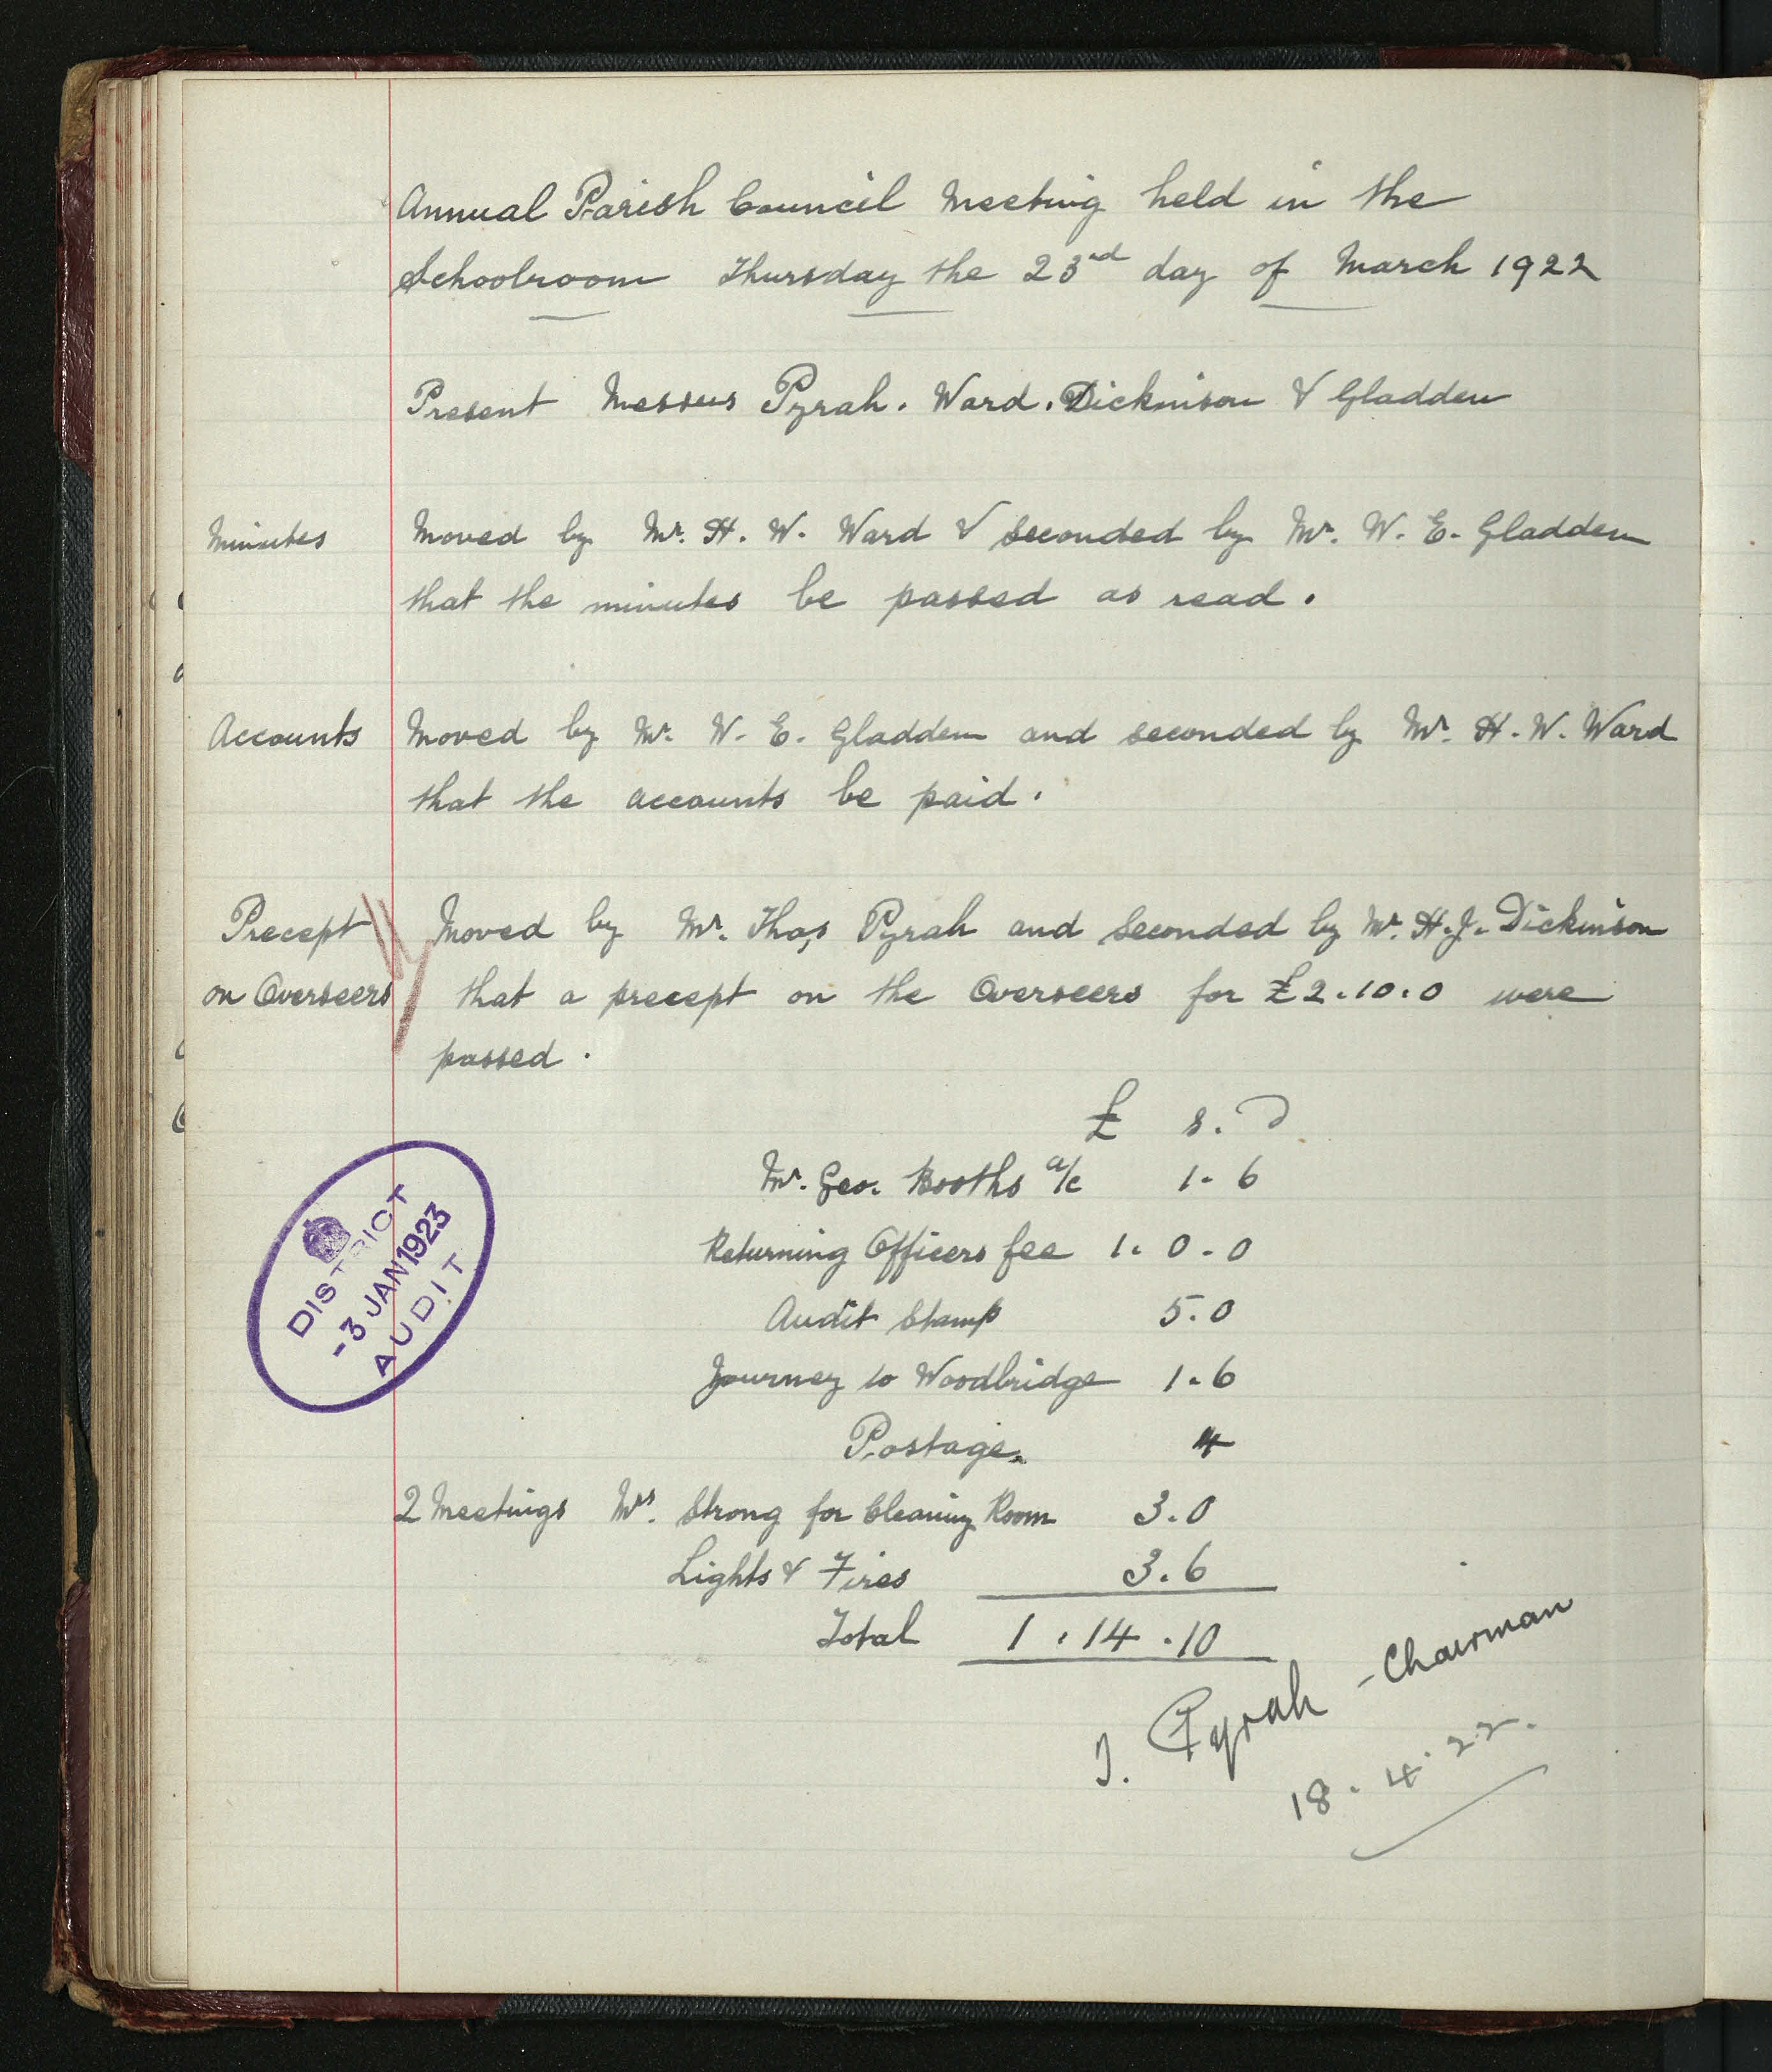 Annual Parish Council Meeting held in the
Schoolroom Thursday the 23rd day of March 1922
Present Messrs Pyrah. Ward. Dickinson & Gladden
Minutes Moved by Mr. H. W. Ward & seconded by Mr. W. E. Gladden
that the minutes be passed as read.
Accounts Moved by Mr. W. E. Gladden and seconded by Mr. H. W. Ward
that the accounts be paid.
Precept Moved by Mr. Thos Pyrah and seconded by Mr. H. J. Dickinson
on Overseers that a precept on the Overseers for £2.10.0 were
passed.
£ s. D
Mr. Geo. Booths a/c 1. 6
Returning Officers fee 1. 0. 0
Audit Stamp 5.0
Journey to Woodbridge 1.6
Postage. 4
2 Meetings Mrs. Strong for Cleaning Room 3.0
Lights & Fires 3.6
Total 1.14.10
T. Pyrah - Chairman
18. 4. 22.
DISTRICT
-3 JAN 1923
AUDIT